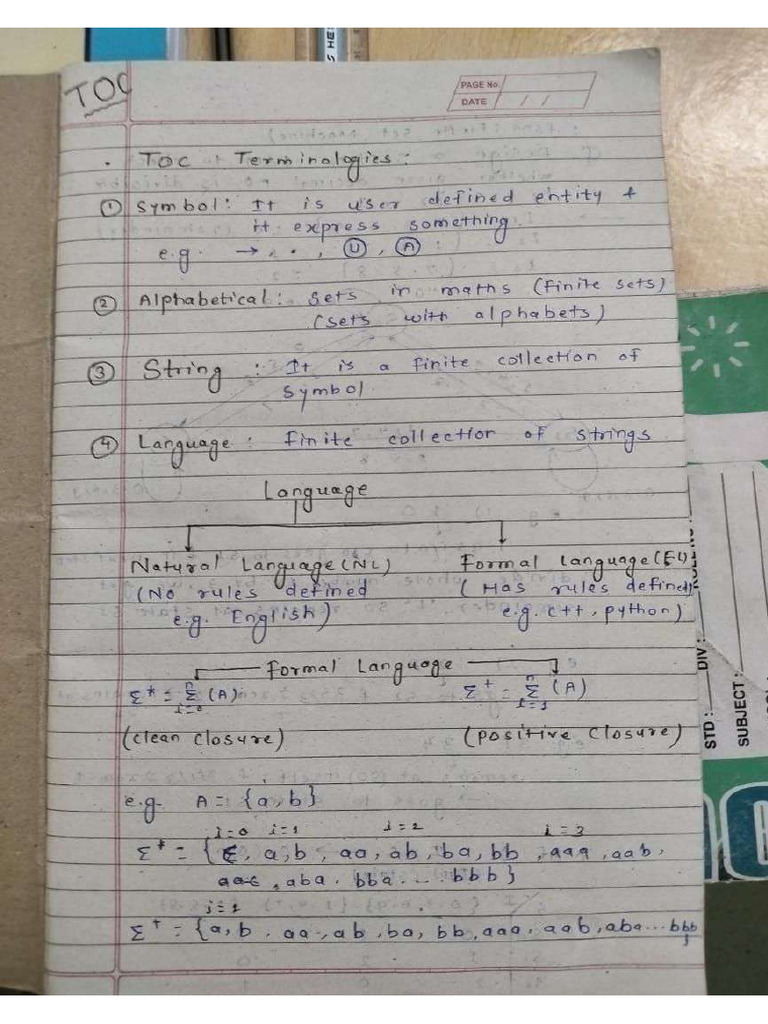 S HB
TOC
PAGE No.
DATE / /
. TOC Terminologies:
① Symbol: It is user defined entity &
it express something.
e.g. → , • , Ⓤ , Ⓐ :
② Alphabetical: sets in maths (finite sets)
(sets with alphabets)
③ String : It is a finite collection of
symbol
④ Language: finite collection of strings
Language
Natural Language (NL) Formal Language (FL)
(No rules defined (Has rules defined)
e.g. English) e.g. C++, python)
Formal Language
Σ* = Σ (A) Σ+ = Σ (A)
i=0 i=1
(clean closure) (positive closure)
e.g. A = {a,b}
i=0 i=1 i=2 i=3
Σ* = { ε, a,b, aa, ab, ba, bb, aaa, aab,
aac, aba, bba.... bbb}
i=1
Σ+ = {a,b, aa, ab, ba, bb, aaa, aab, aba... bbb
}
STD: DIV:
SUBJECT: